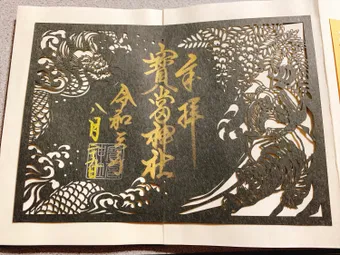 奉拝
寶當神社
令和三年
八月